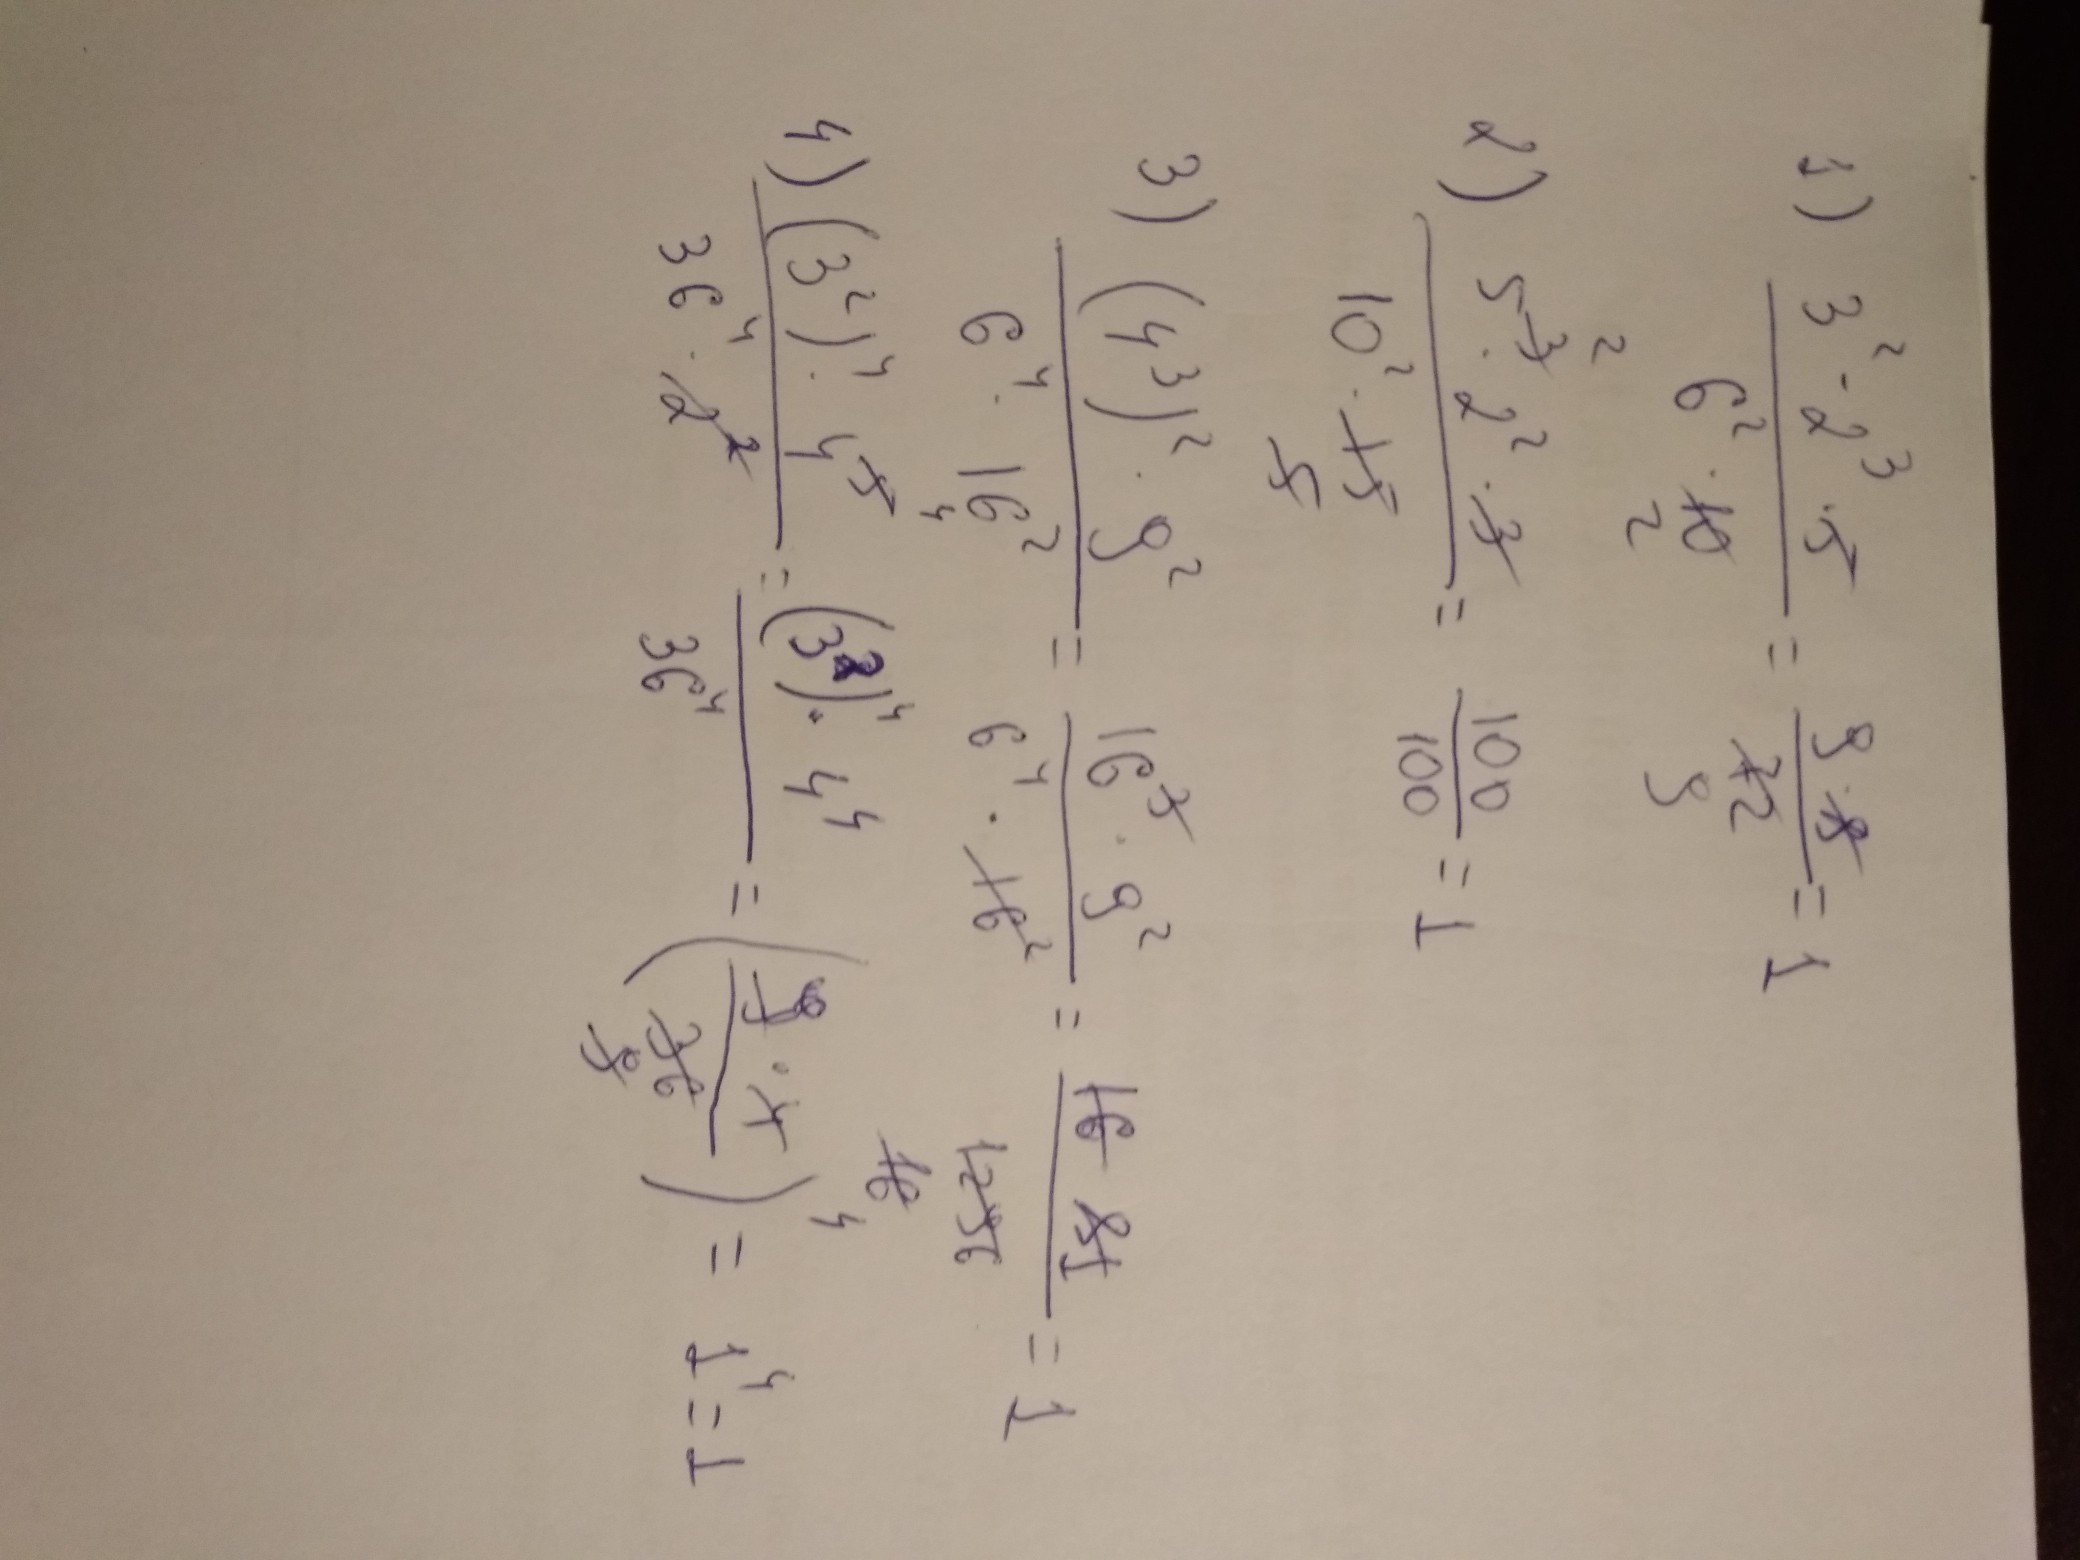 1) 3² · 2³ · 5 / 6² · 10 2 = 9 · 8 / 72 9 = 1
2) 5³ ² · 2² · 3 / 10² · 15 5 = 100 / 100 = 1
3) (4³)² · 9² / 6⁴ · 16² = 16³ · 9² / 6⁴ · 16² = 16 81 / 1296 16 = 1
4) (3²)⁴ · 4⁵ ⁴ / 36⁴ · 2² = (3²)⁴ · 4⁴ / 36⁴ = (9 · 4 / 36 9)⁴ = 1⁴ = 1